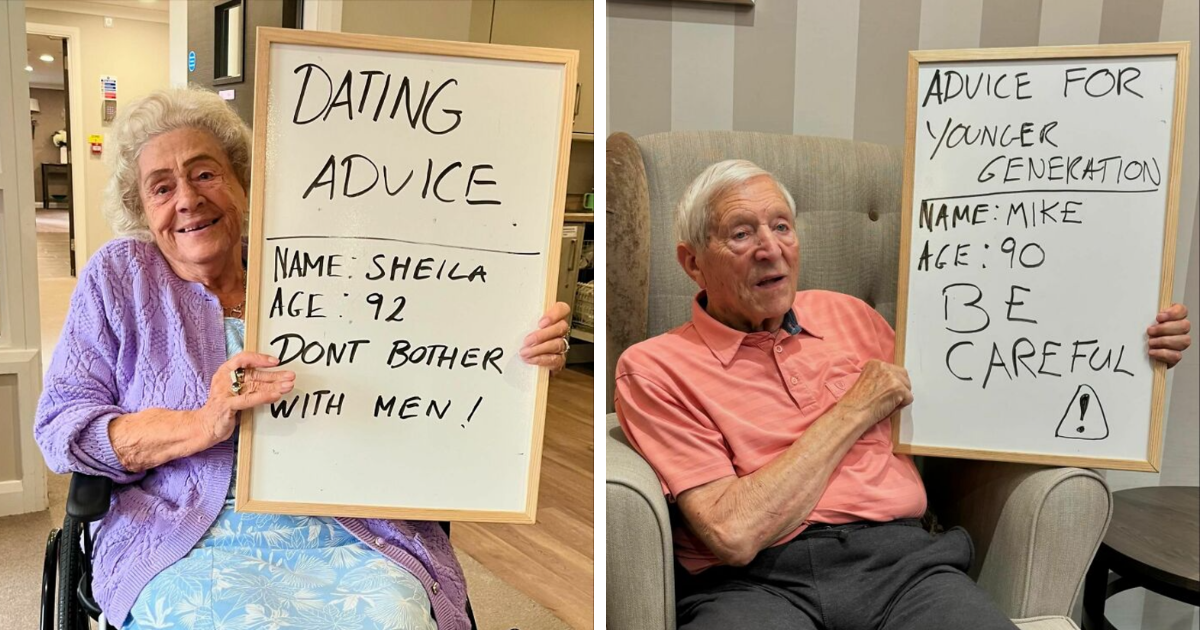 DATING
ADVICE
NAME: SHEILA
AGE: 92
DONT BOTHER
WITH MEN!
ADVICE FOR
YOUNGER
GENERATION
NAME: MIKE
AGE: 90
BE
CAREFUL
!